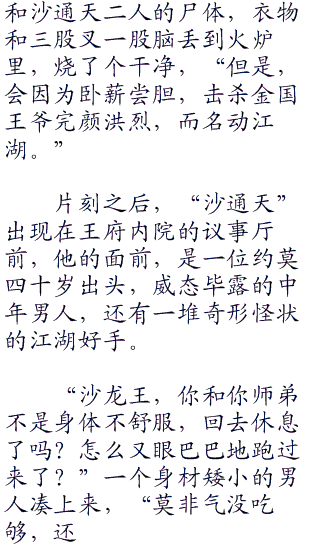 和沙通天二人的尸体，衣物
和三股叉一股脑丢到火炉
里，烧了个干净，“但是，
会因为卧薪尝胆，击杀金国
王爷完颜洪烈，而名动江
湖。”
片刻之后，“沙通天”
出现在王府内院的议事厅
前，他的面前，是一位约莫
四十岁出头，威态毕露的中
年男人，还有一堆奇形怪状
的江湖好手。
“沙龙王，你和你师弟
不是身体不舒服，回去休息
了吗？怎么又眼巴巴地跑过
来了？”一个身材矮小的男
人凑上来，“莫非气没吃
够，还